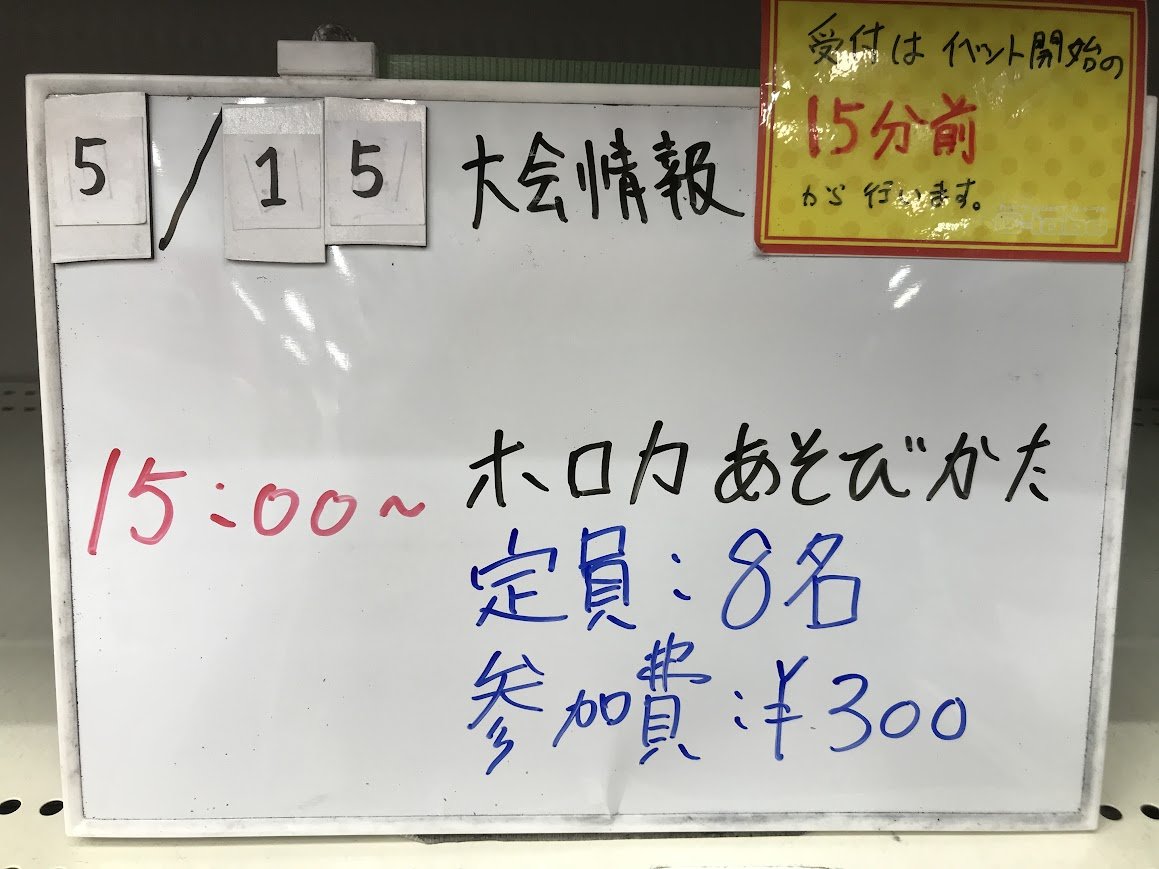 5/15 大会情報
受付は イベント開始の
15分前
から 行います。
15:00~ ホロカ あそびかた
定員:8名
参加費:¥300